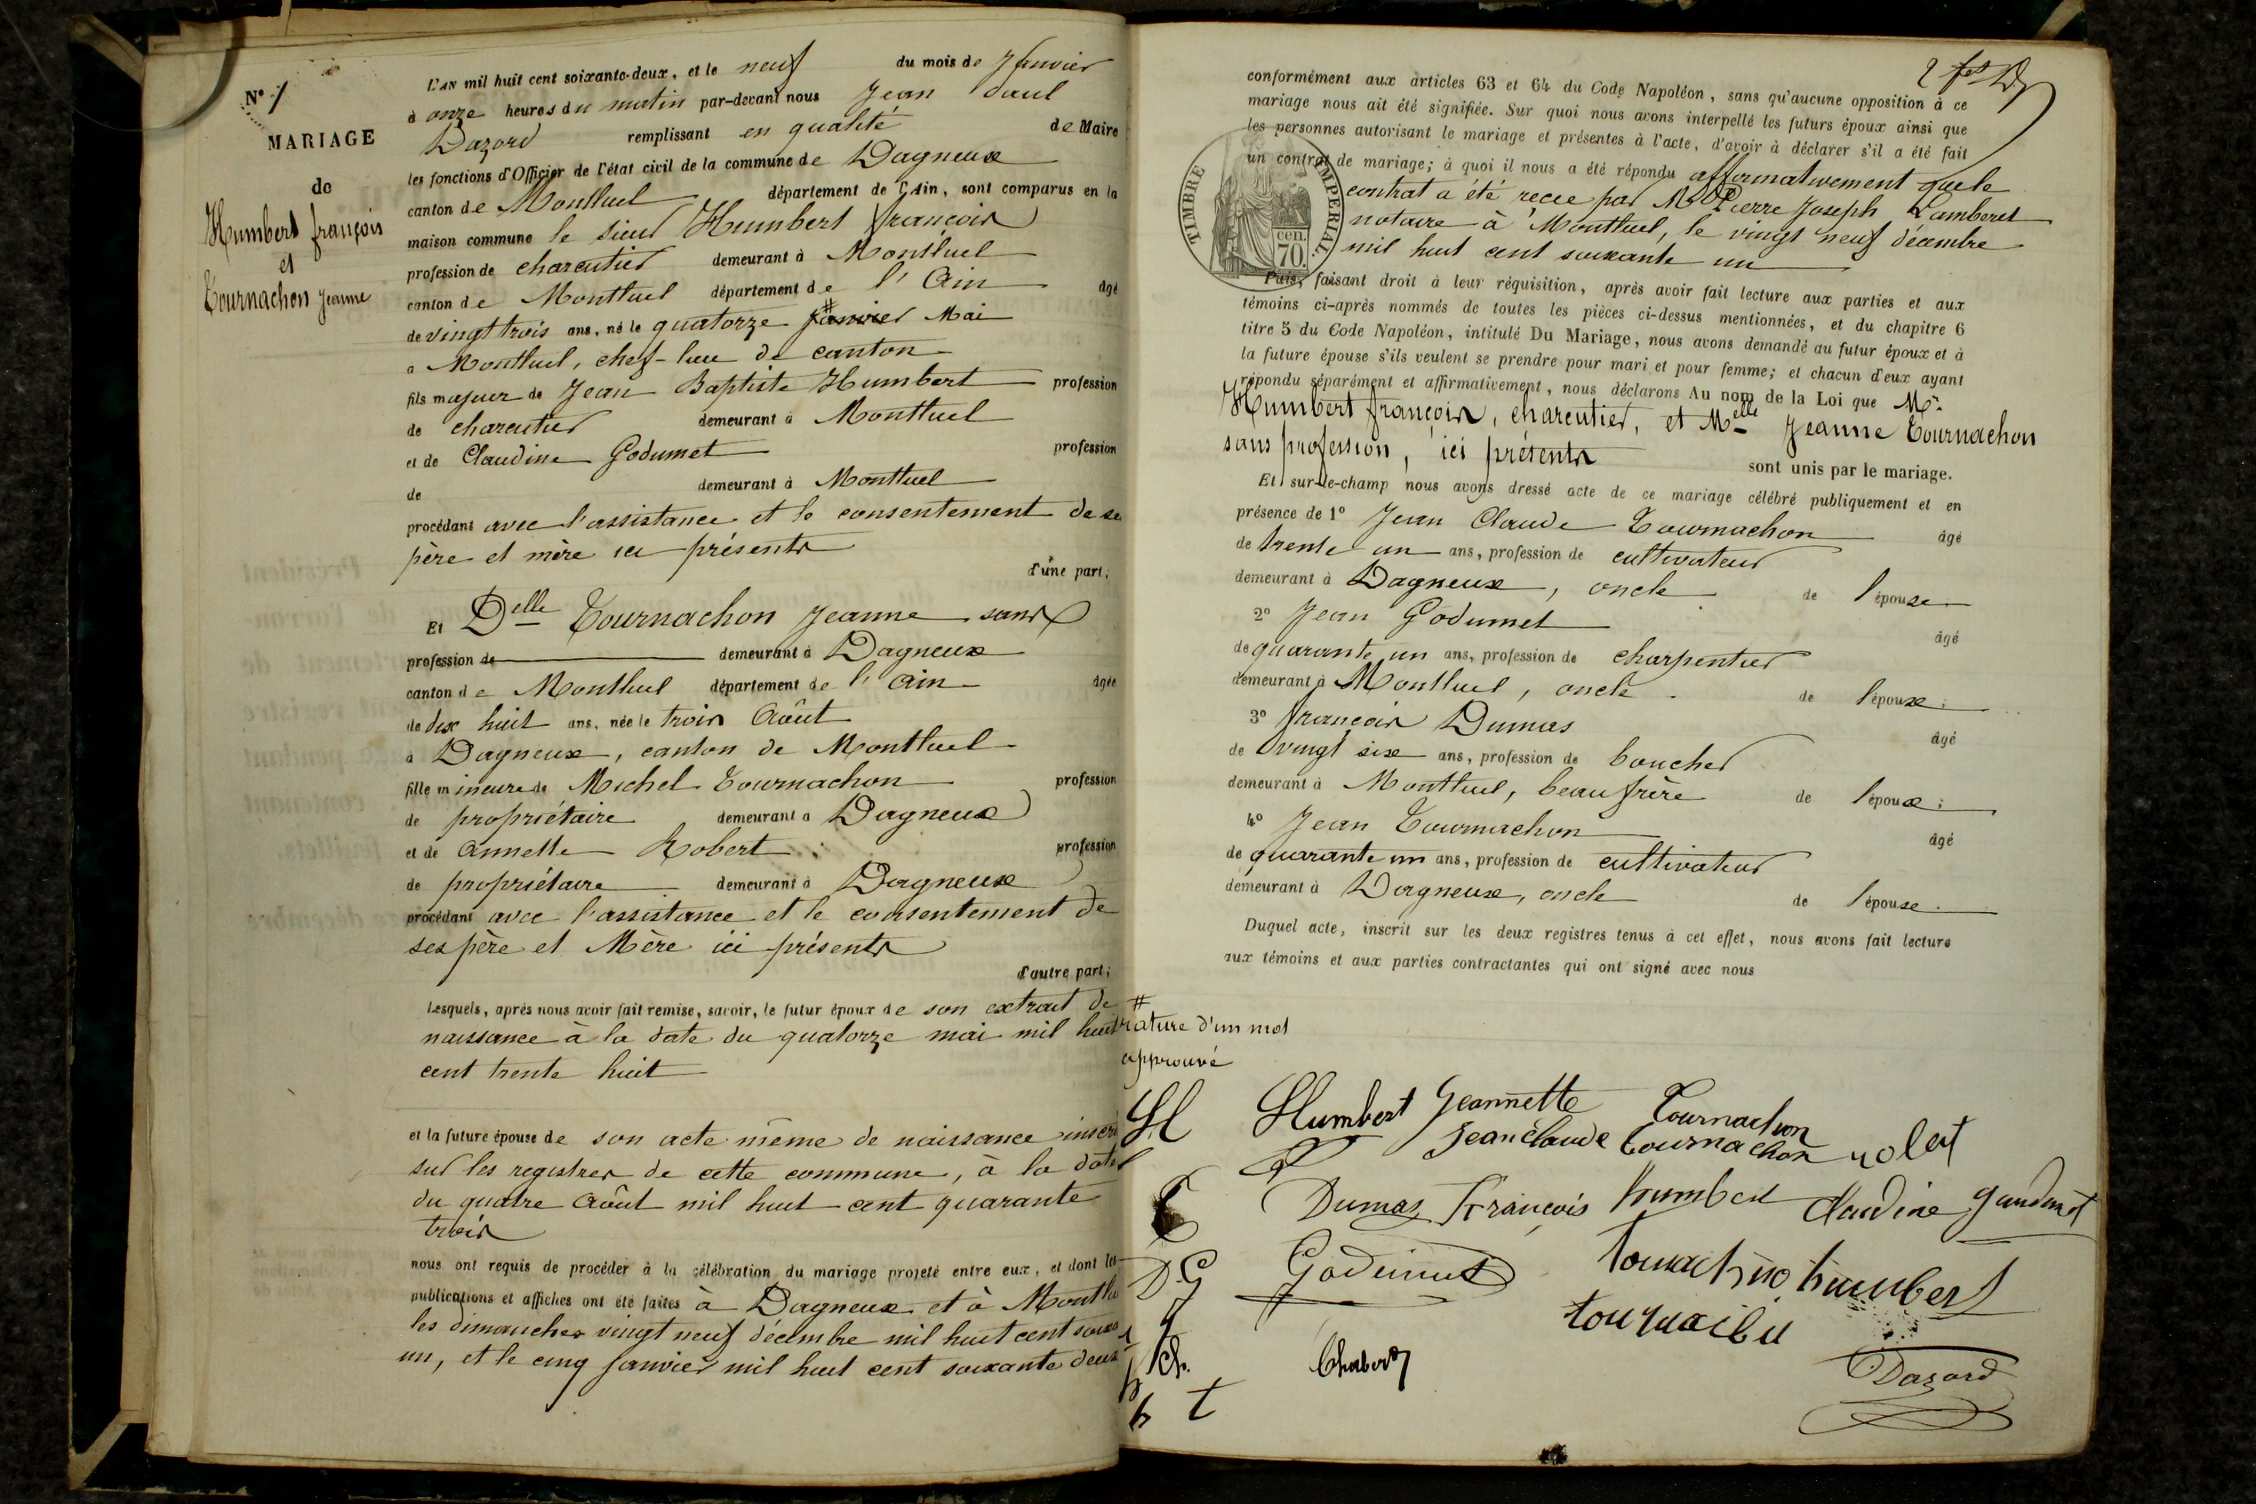 N° 1
MARIAGE
de
Humbert françois
et
Tournachon Jeanne
L'AN mil huit cent soixante-deux, et le neuf du mois de Janvier
à onze heures du matin par-devant nous Jean Paul
Dazord remplissant en qualité de Maire
les fonctions d'Officier de l'état civil de la commune de Dagneux
canton de Montluel département de l'Ain, sont comparus en la
maison commune le sieur Humbert françois
profession de charcutier demeurant à Montluel
canton de Montluel département de l'Ain âgé
de vingt trois ans, né le quatorze # janvier Mai
à Montluel, chef-lieu de canton
fils majeur de Jean Baptiste Humbert profession
de charcutier demeurant à Montluel
et de Claudine Godumet profession
de demeurant à Montluel
procédant avec l'assistance et le consentement de se
père et mère ici présents
d'une part;
Et Delle Tournachon Jeanne sans
profession de demeurant à Dagneux
canton de Montluel département de l'Ain âgée
de dix huit ans, née le trois Août
à Dagneux, canton de Montluel
fille mineure de Michel Tournachon profession
de propriétaire demeurant à Dagneux
et de Annette Robert profession
de propriétaire demeurant à Dagneux
procédant avec l'assistance et le consentement de
ses père et Mère ici présents
d'autre part;
Lesquels, après nous avoir fait remise, savoir, le futur époux de son extrait de
naissance à la date du quatorze mai mil huit
cent trente huit
et la future épouse de son acte même de naissance inscri
sur les registres de cette commune, à la date
du quatre Août mil huit cent quarante
trois
nous ont requis de procéder à la célébration du mariage projeté entre eux, et dont les
publications et affiches ont été faites à Dagneux et à Montlu
les dimanches vingt neuf décembre mil huit cent soixa
un, et le cinq Janvier mil huit cent soixante deux
conformément aux articles 63 et 64 du Code Napoléon, sans qu'aucune opposition à ce
mariage nous ait été signifiée. Sur quoi nous avons interpellé les futurs époux ainsi que
les personnes autorisant le mariage et présentes à l'acte, d'avoir à déclarer s'il a été fait
un contrat de mariage; à quoi il nous a été répondu affirmativement que le
contrat a été reçu par Me Pierre Joseph Lamberet
notaire à Montluel, le vingt neuf décembre
mil huit cent soixante un
TIMBRE IMPERIAL
cen.
70.
Puis, faisant droit à leur réquisition, après avoir fait lecture aux parties et aux
témoins ci-après nommés de toutes les pièces ci-dessus mentionnées, et du chapitre 6
titre 5 du Code Napoléon, intitulé Du Mariage, nous avons demandé au futur époux et à
la future épouse s'ils veulent se prendre pour mari et pour femme; et chacun d'eux ayant
répondu séparément et affirmativement, nous déclarons Au nom de la Loi que Mr.
Humbert françois, charcutier, et Melle Jeanne Tournachon
sans profession, ici présents sont unis par le mariage.
Et sur-le-champ nous avons dressé acte de ce mariage célébré publiquement et en
présence de 1° Jean Claude Tournachon âgé
de trente un ans, profession de cultivateur
demeurant à Dagneux, oncle de l'épouse
2° Jean Godumet âgé
de quarante un ans, profession de charpentier
demeurant à Montluel, oncle de l'époux;
3° françois Dumas âgé
de vingt six ans, profession de boucher
demeurant à Montluel, beau frère de l'époux;
4° Jean Tournachon âgé
de quarante un ans, profession de cultivateur
demeurant à Dagneux, oncle de l'épouse
Duquel acte, inscrit sur les deux registres tenus à cet effet, nous avons fait lecture
aux témoins et aux parties contractantes qui ont signé avec nous
# rature d'un mot
approuvé
H Humbert Jeannette Tournachon
Jean claude Tournachon
T Dumas François humbert Claudine
DG Godumet humbert
ch. Chabord
h t Dazord